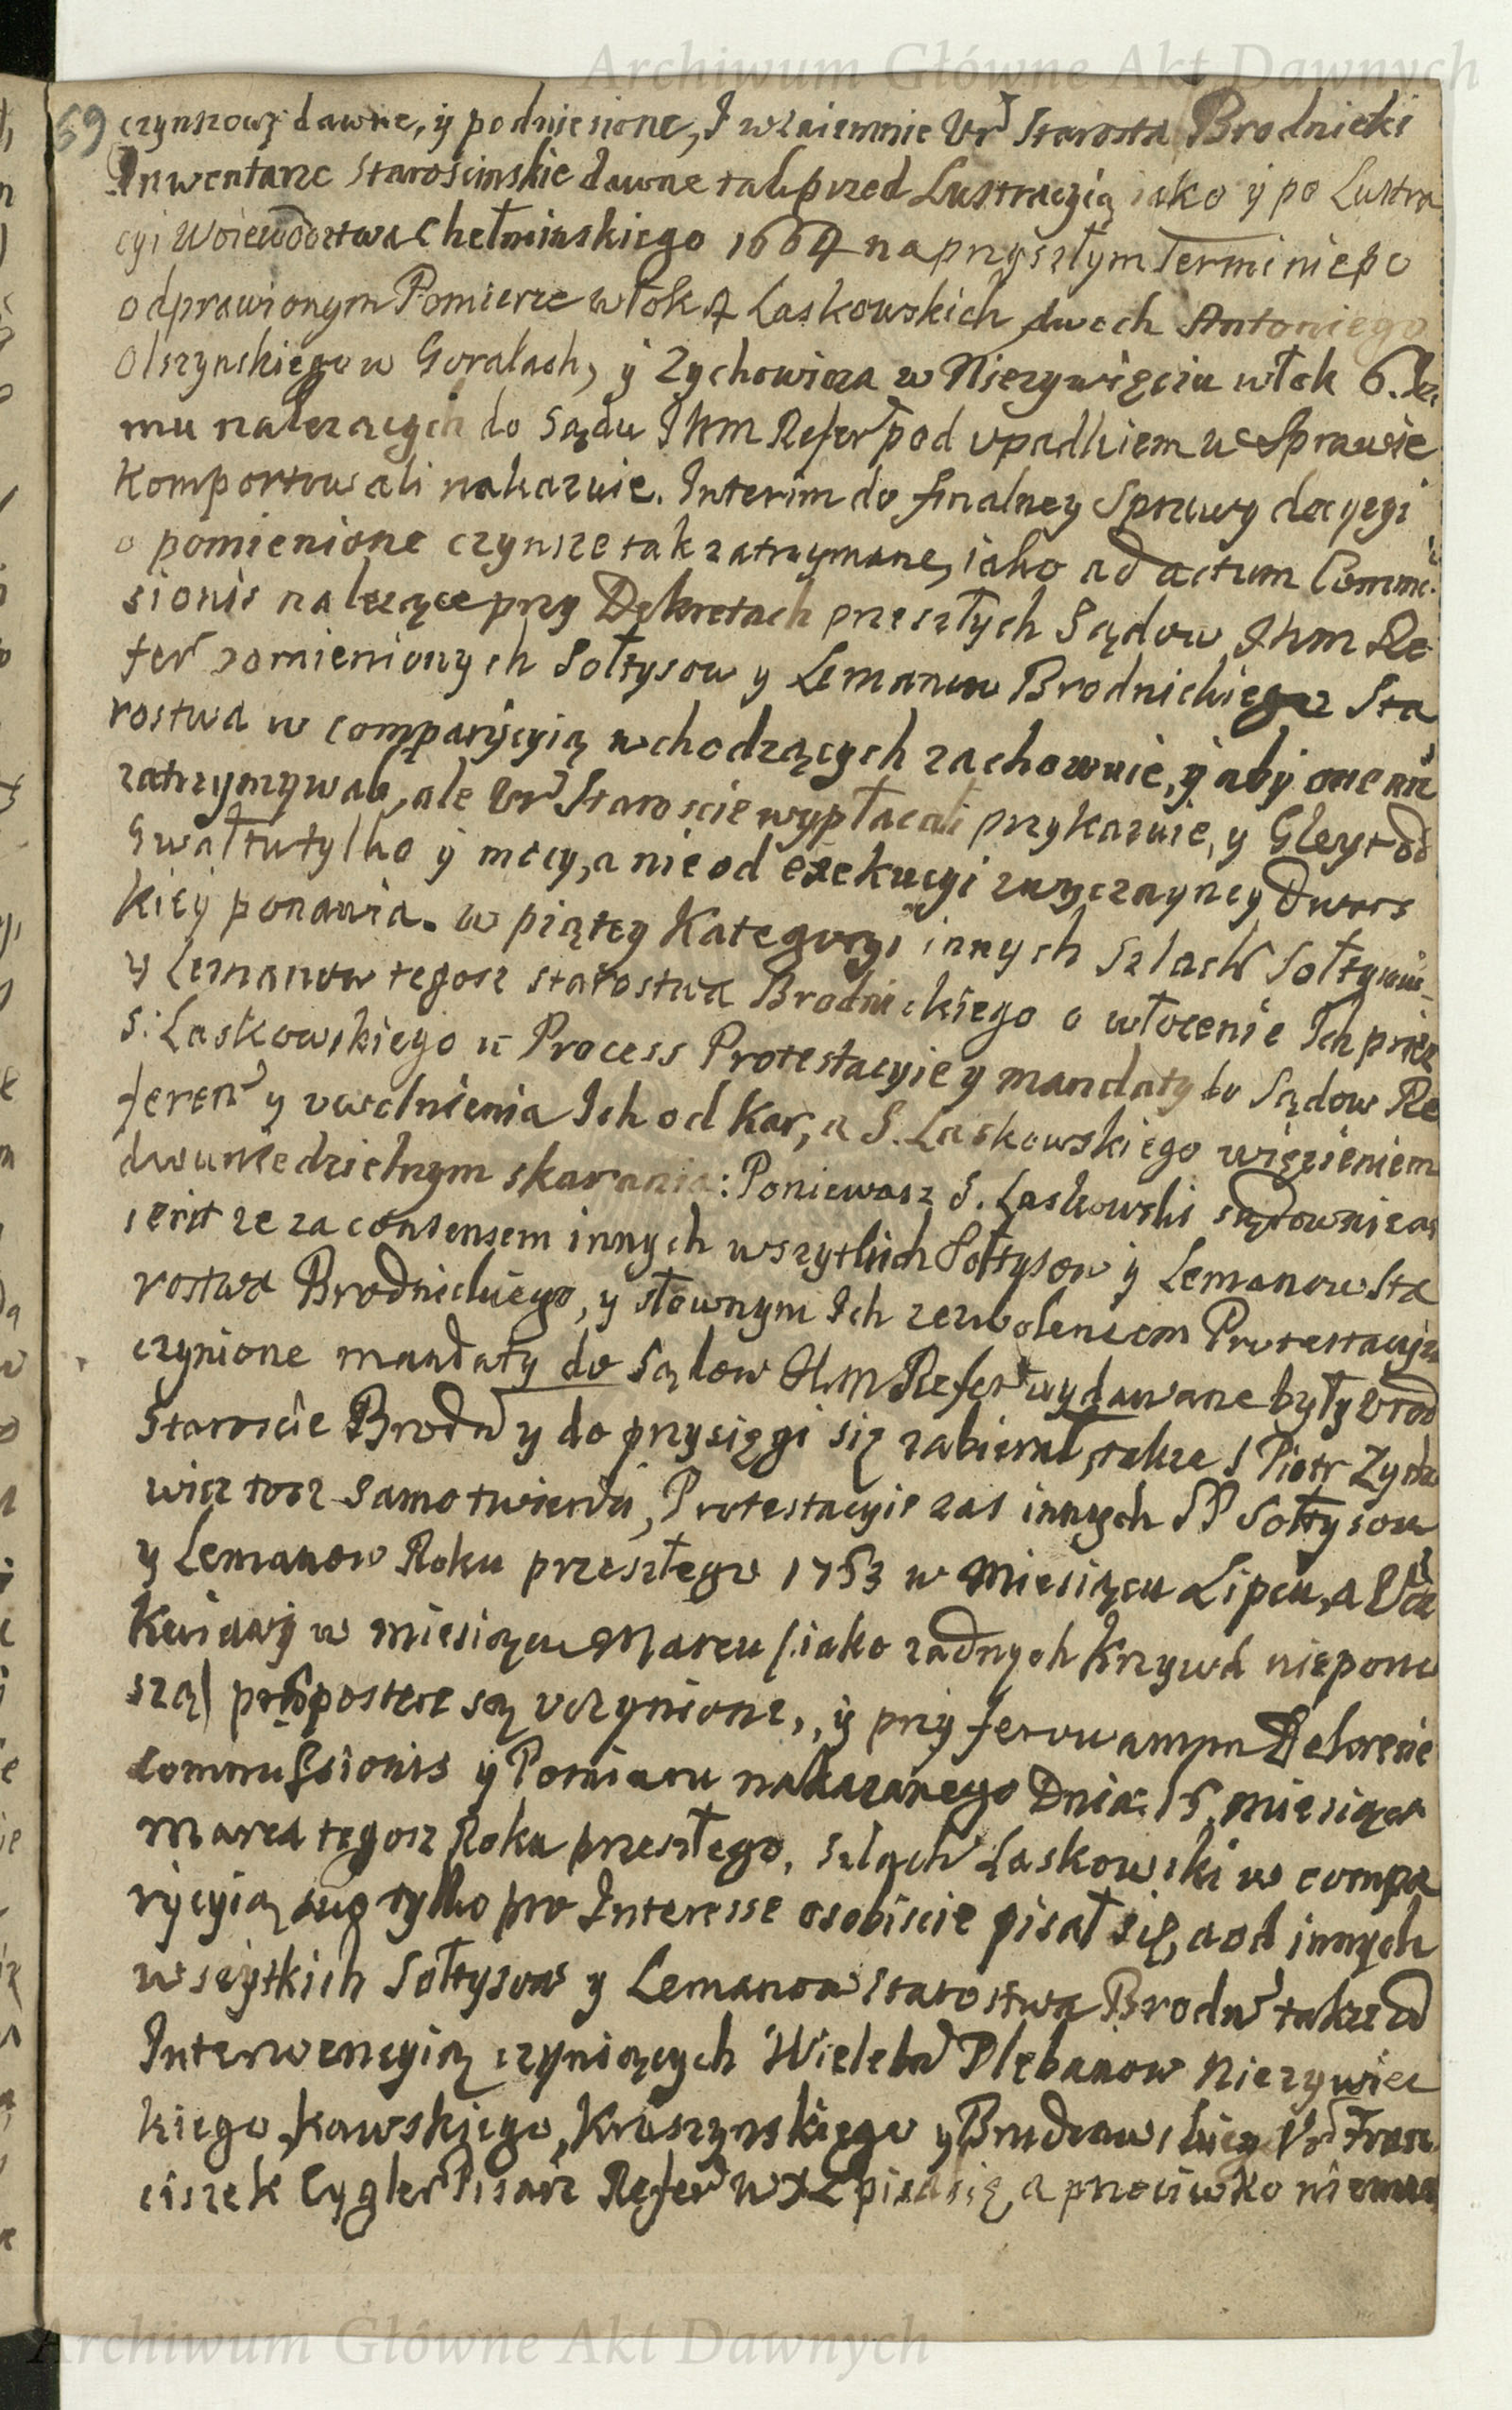 Archiwum Główne Akt Dawnych
59
czynszowy dawne, y podniesione, I wzaiemnie Ur Starosta Brodnicki
Inwentarze Starościnskie dawne tak przed Lustracyią iako y po Lustra
cyi Woiewodztwa Chełminskiego 1664 na przyszłym Terminie po
odprawionym Pomierze włok 4 Laskowskich dwoch Antoniego
Olszynskiego w Goralach, y Zychowicza w Niezywięciu włok 6.
mu nalezacych do Sądu IKM Refer pod upadkiem w Sprawie
Komportowali nakazuie. Interim do finalney Sprawy decyzyi
o pomienione czynsze tak zatrzymane, iako ad actum Commis
sionis nalezące przy Dekretach przeszłych Sądow IKM Re
fer pomienionych Sołtysow y Lemanow Brodnickiego Sta
rostwa w comparycyią wchodzących zachowuie, y aby one nie
zatrzymywali, ale Ur Staroscie wypłacali przykazuie, y Gleyt od
Gwałtu tylko y mocy, a nie od exekucyi zwyczayney Dwors
kiey ponawia. w piątey Kategoryi innych Szlach Sołtysow
y Lemanow tegosz starostwa Brodnickiego o włocenie Ich przez
S: Laskowskiego w Process Protestacyie y mandaty do Sądow Re
feren y uwolnienia Ich od Kar, a S. Laskowskiego więzieniem
dwuniedzielnym skarania: Poniewasz S. Laskowski sądownie zas
ierit ze za consensem innych wszytkich Sołtysow y Lemanow Sta
rostwa Brodnickiego, y słownym Ich zezwoleniem Protestacyie
czynione mandaty do Sądow IKM Refer wydawane były Urod
Staroscie Brodn y do przysięgi się zabierał, takze S Piotr Zycho
wicz tosz samo twierdzi, Protestacyie zas innych SP Sołtysow
y Lemanow Roku przeszłego 1753 w Miesiącu Lipcu, a
w miesiącu Marcu /:iako zadnych Krzywd niepono
szą/ postere są uczynione, y przy ferowanym Dekrecie
Commissionis y Pomiaru nakazanego Dnia 15 miesiąca
Marca tegosz Roku przeszłego, Szlach Laskowski w compa
rycyią swą tylko pro Interesse osobiscie pisał się, a od innych
wszystkich Sołtysow y Lemanow Starostwa Brodn takze od
Interwencyią czyniących Wieleb Plebanow Niezywiec
kiego, Kawskiego, Kruszynskiego y Ur Fran
ciszek Cygler Pisarz Refer W X L pisał się, a przeciwko
Archiwum Główne Akt Dawnych